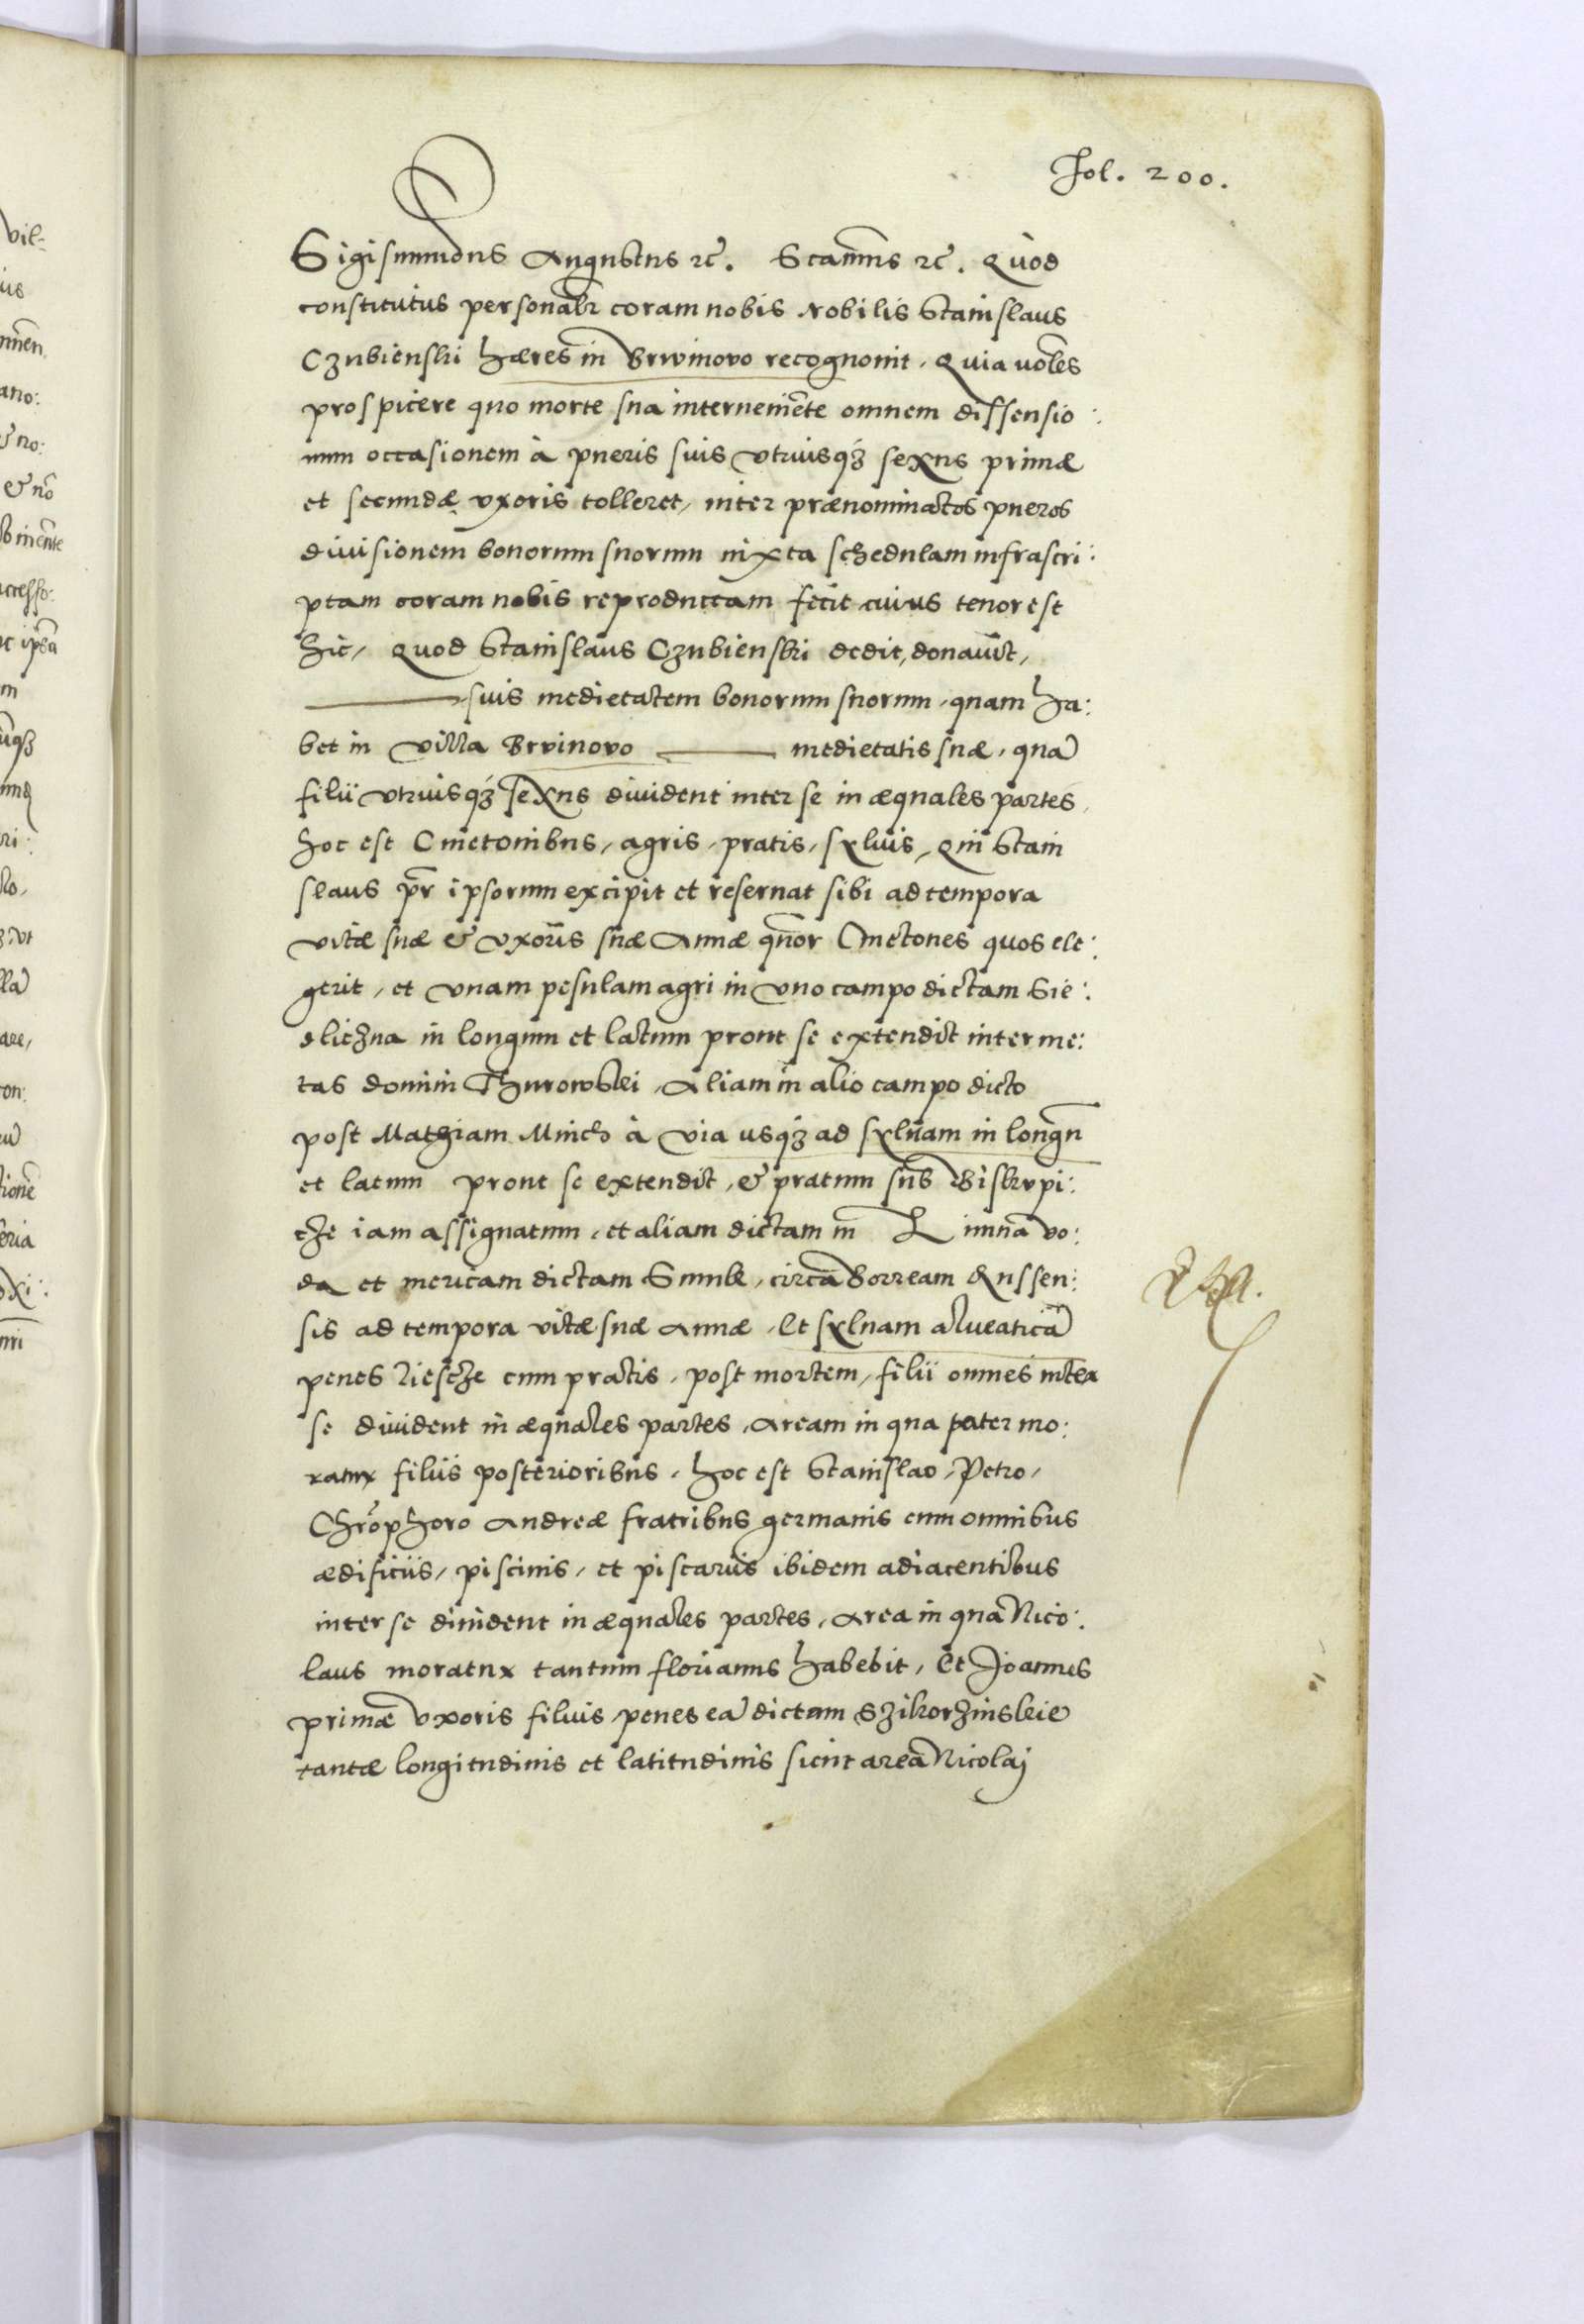 Fol. 200.
Sigismundus Augustus rc̃. Scam̃us rc̃. Quòd
constitutus personalr̃ coram nobis Nobilis Stanislaus
Czubienski hæres in Brwinowo recognouit, Quia uolẽs
prospicere quo morte sua interueniẽte omnem dissensio:
num occasionem à pueris suis vtriusq₃ sexus primæ
et secundæ vxoris tolleret, inter prænominatos pueros
diuisionem bonorum suorum iuxta schedulam infrascri:
ptam coram nobis reproductam fecit cuius tenor est
hic, Quod Stanislaus Czubienski dedit, donauit,
suis medietatem bonorum suorum, quam ha:
bet in villa Brvinovo medietatis suæ, quã
filii vtriusq₃ sexus diuident inter se in æquales partes,
hoc est Cmetonibus, agris, pratis, syluis, Qui Stani
slaus pr̃ ipsorum excipit et reseruat sibi ad tempora
vitæ suæ & vxoris suæ Annæ qũor Cmetones quos ele:
gerit, et vnam pesulam agri in vno campo dictam Sie:
dliczna in longum et latum prout se extendit inter me:
tas domini Thurowski, Aliam in alio campo dicto
post Mathiam Minch à via usq₃ ad syluam in longũ
et latum prout se extendit, & pratum sub Biskupi:
cze iam assignatum, et aliam dictam in Limna vo:
da et mericam dictam Smuk, circa Borream Russen:
sis ad tempora vitæ suæ Annæ, Et syluam alueaticã
penes Miescze cum pratis, post mortem, filii omnes inter
se diuident in æquales partes, Aream in qua pater mo:
ratur filiis posterioribus, hoc est Stanislao, Petro,
Chrõphoro Andreæ fratribus germanis cum omnibus
ædificiis, piscinis, et piscariis ibidem adiacentibus
inter se diuident in æquales partes, Area in qua Nico:
laus moratur tantum florianus habebit, Et Joannes
primæ vxoris filius, penes eã dictam Szikorzinskie
tantæ longitudinis et latitudinis sicut area Nicolaj